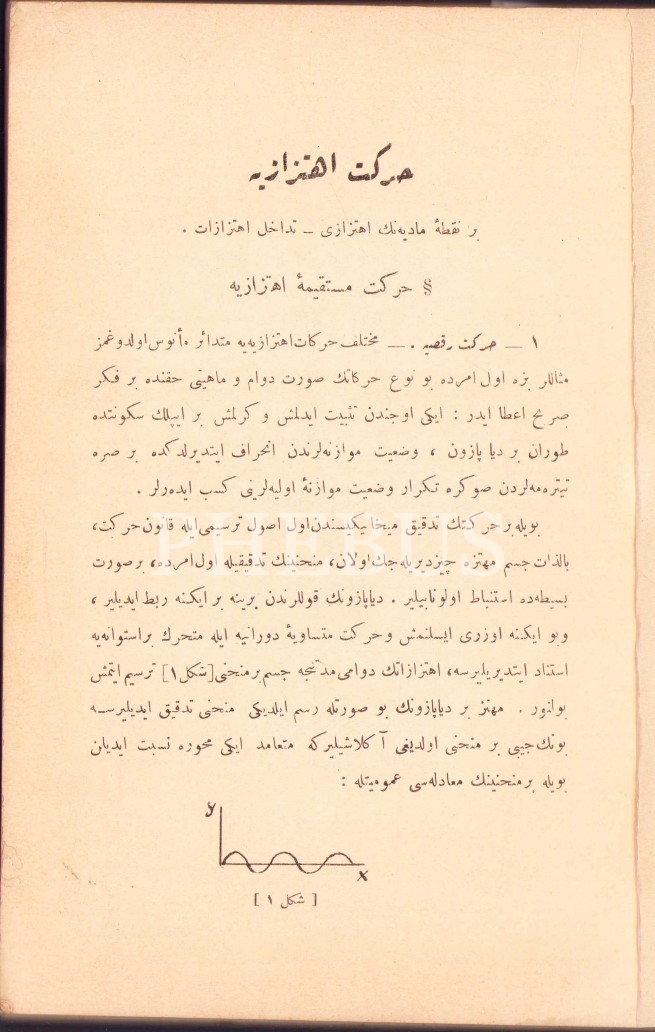 حركت اهتزازيه
بر نقطهٔ ماديه‌نك اهتزازى ــ تداخل اهتزازات .
§ حركت مستقيمهٔ اهتزازيه
١ ــ حركت رقصيه . ــ مختلف حركات اهتزازيه‌يه متدائر مأنوس اولدوغمز
مثاللر بزه اول امرده بو نوع حركاتك صورت دوام و ماهيتى حقنده بر فكر
صريح اعطا ايدر : ايكى اوجندن تثبيت ايدلمش و كرلمش بر ايپلك سكونتده
طوران بر دياپازون ، وضعيت موازنه‌لرندن انحراف ايتديرلدكده بر صره
تيتره‌مه‌لردن صوكره تكرار وضعيت موازنهٔ اوليه‌لرينى كسب ايده‌رلر .
بويله بر حركتك تدقيق ميخانيكيسندن اول اصول ترسيمى ايله قانون حركت،
بالذات جسم مهتزه چيزديريله‌جك اولان، منحنينك تدقيقيله اول امرده، بر صورت
بسيطه‌ده استنباط اولونابيلير . دياپازونك قوللرندن برينه بر ايكنه ربط ايديلير ،
و بو ايكنه اوزرى ايسلنمش و حركت متساويهٔ دورانيه ايله متحرك بر استوانه‌يه
استناد ايتديريليرسه، اهتزازاتك دوامى مدتنجه جسم بر منحنى [شكل ١] ترسيم ايتمش
بولنور . مهتز بر دياپازونك بو صورتله رسم ايلديكى منحنى تدقيق ايديليرسه
بونك جيبى بر منحنى اولديغى آكلاشيلير كه متعامد ايكى محوره نسبت ايديلن
بويله بر منحنينك معادله‌سى عموميتله :
y
x
[ شكل ١ ]
PHEBUS